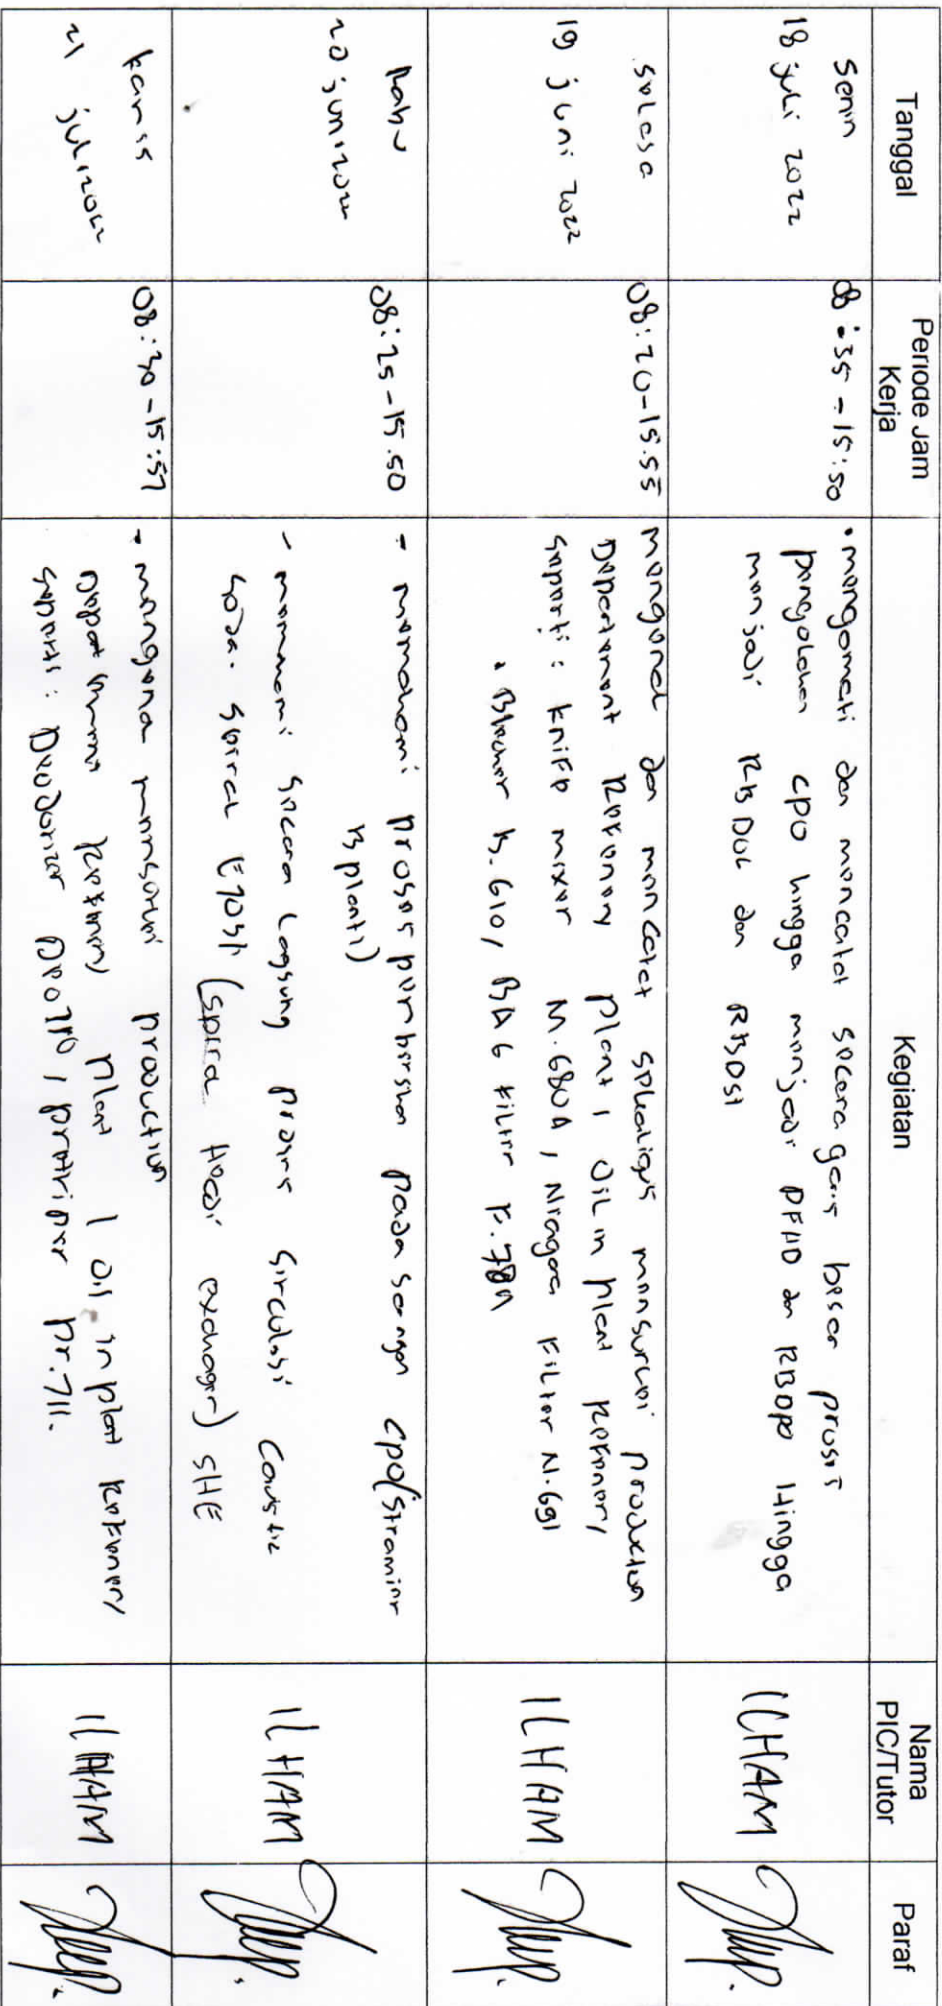 Tanggal
Periode Jam
Kerja
Kegiatan
Nama
PIC/Tutor
Paraf
Senin
18 juli 2022
08:35 - 15:50
• mengamati dan mencatat secara garis besar proses
pengolahan CPO hingga menjadi PFAD dan RBDPO Hingga
menjadi RBDOL dan RBDST
ILHAM
selasa
19 juni 2022
08:20-15.55
mengenal dan mencatat sekaligus mensurvei production
Departement Refenery plant 1 Oil in plant Refenery
seperti: knife mixer M.680A, Niagara Filter N.691
• Bleacher B.610, BAG Filter F.
ILHAM
Rabu
20 juni 2022
08:25-15.50
- memahami proses pembersihan pada saringan CPO (strainer
B plant 1)
- memahami secara lagsung proses sirculasi Caustic
soda. Spiral E705A (Spiral Heat exchager) SHE
ILHAM
kamis
21 juli 2022
08:30-15:57
- mengenal mensurvei production
Departemen Refenery Plant 1 oil in plant Refenery
seperti: Deodorizer DE0710, prestriper Pr.711.
ILHAM